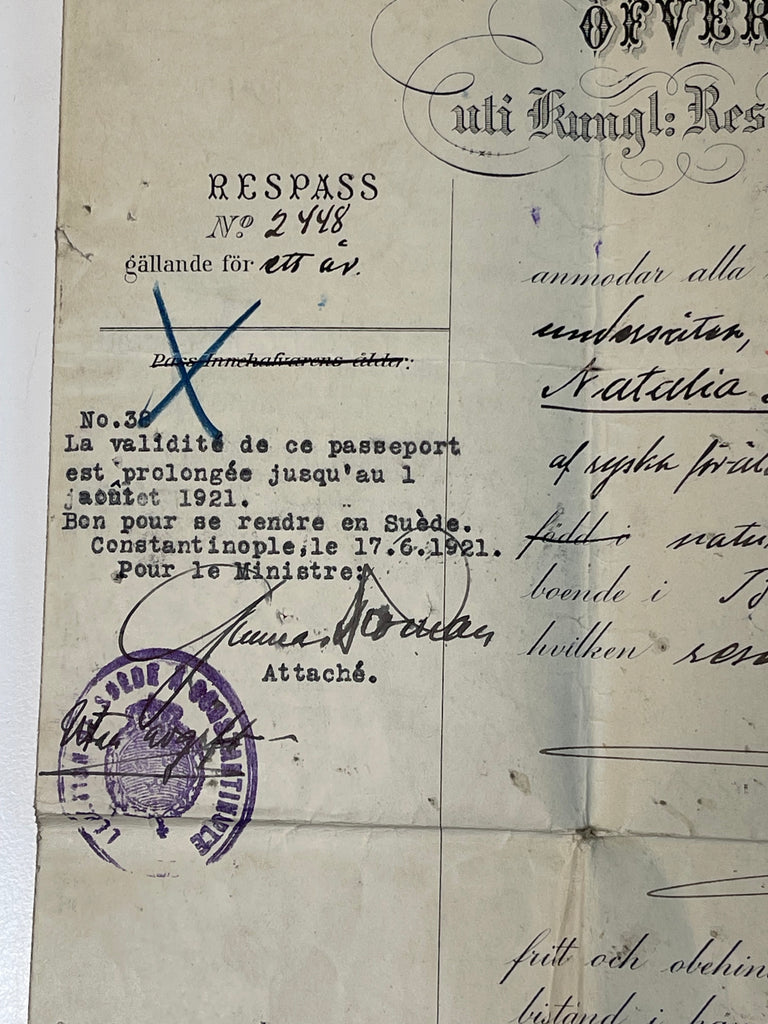 ÖFVER
uti Kungl: Res
RESPASS
No 2448
gällande för ett år.
Pass-Innehafvarens ålder:
No.38
La validité de ce passeport
est prolongée jusqu'au 1
août 1921.
Bon pour se rendre en Suède.
Constantinople, le 17.6.1921.
Pour le Ministre:
Attaché.
LEGATION SUEDE A CONSTANTINOPLE
anmodar alla
undersåten,
Natalia
af ryska föräl
född i natu
boende i
hvilken
fritt och obehin
bistånd i